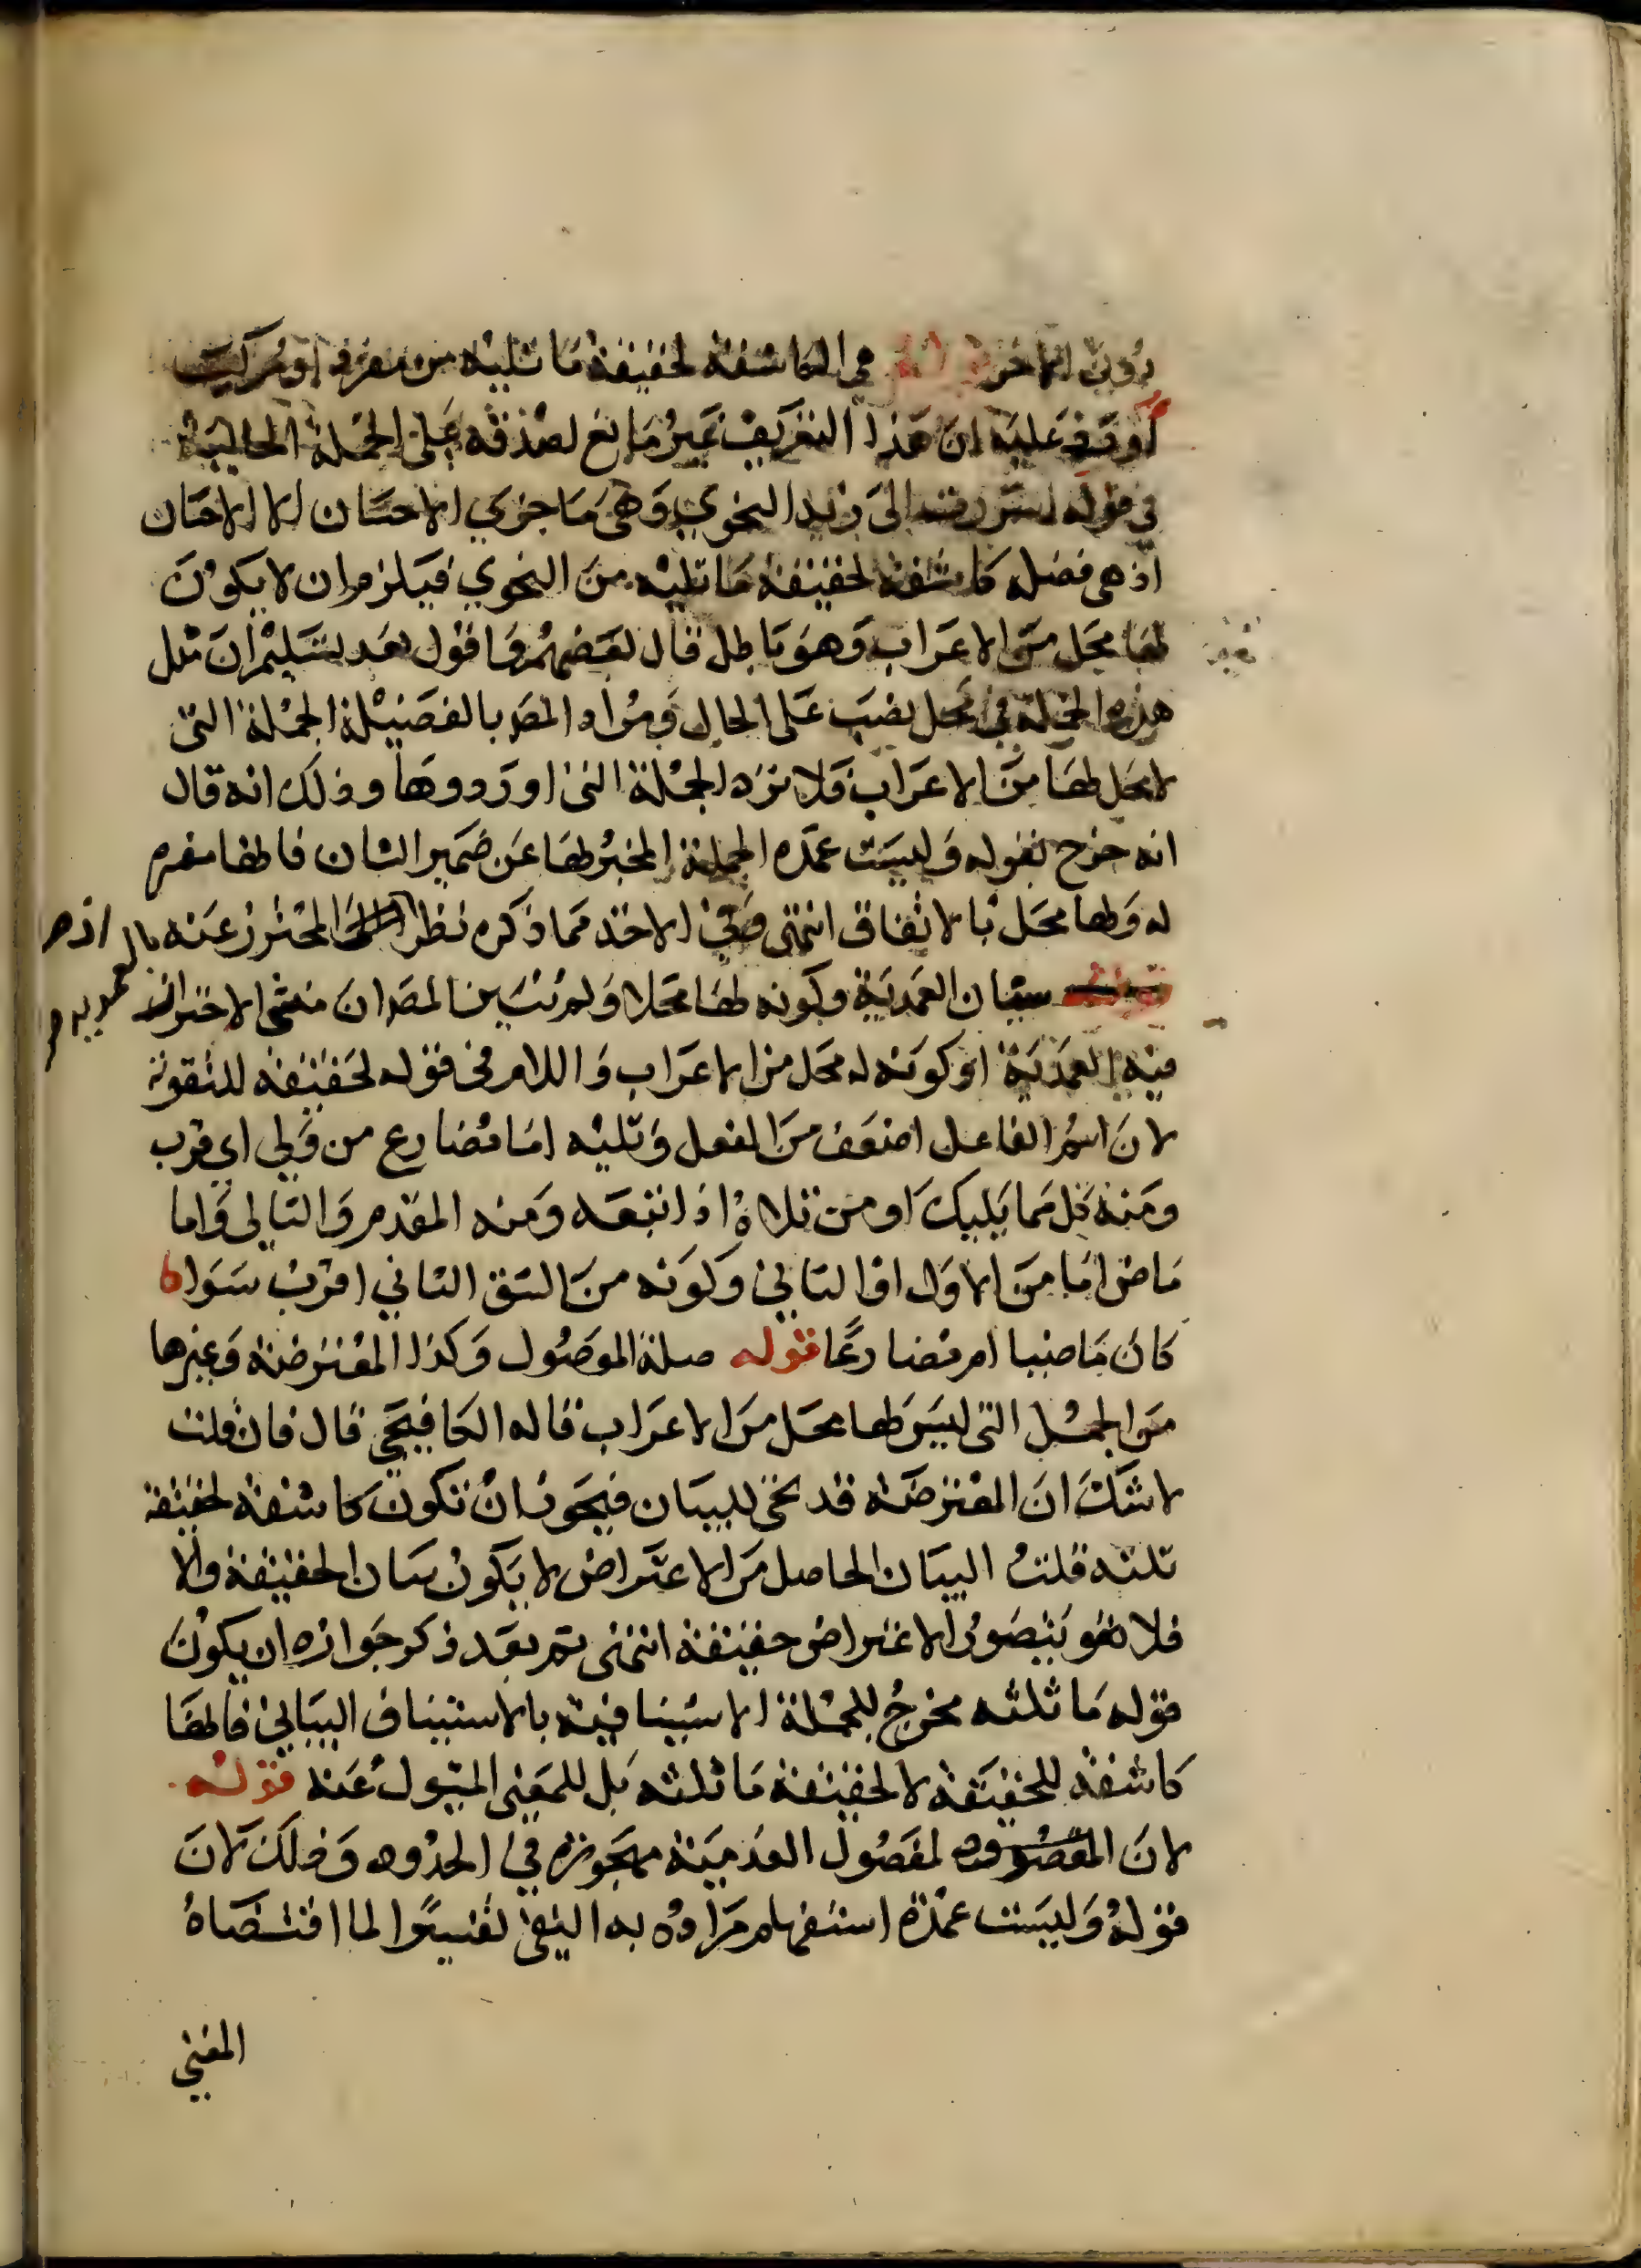 دون الآخر قوله هي الكاشفة لحقيقة ما تليه من مفرد او مركب
أورد عليه ان هذا التعريف غير مانع لصدقه على الجملة الحالية
في قوله اسررت الى زيد النجوي وهي ما جزي الاحسان الا الاحسان
اذ هي فضلة كاشفة لحقيقة ما تليه من النجوي فيلزم ان لا يكون
لها محل من الاعراب وهو باطل قال بعضهم واقول بعد تسليم ان مثل
هذه الجملة في محل نصب على الحال ومراد المصـ بالفضيلة الجملة التي
لا محل لها من الاعراب فلا ترد الجملة التي اوردوها وذلك انه قال
انه خرج بقوله وليست عمدة الجملة المخبر بها عن ضمير الشان فانها مفسرة
له ولها محل بالاتفاق انتهى وفي الاخذ مما ذكره نظر المحترز عنه بالعمدية اذ هو
شيئان العمدية وكونه لها محلا ولم يتبين المصـ ان منشي الاحتراز
فيه العمدية او كونه له محل من الاعراب واللام في قوله لحقيقة للتقوية
لان اسم الفاعل اضعف من الفعل وتليه اما مضارع من ولي اي قرب
ومنه كل مما يليك او من تلاه اذا تبعه ومنه المقدم والتالي واما
ماض اما من الاول او الثاني وكونه من الشق الثاني اقرب سواء
كان ماضيا ام مضارعا قوله صلة الموصول وكذا المعترضة وغيرها
من الجمل التي ليس لها محل من الاعراب قاله الكافيجي قال فان قلت
لا شك ان المعترضة قد تجئ للبيان فيجوز ان تكون كاشفة لحقيقة
تلته قلت البيان الحاصل من الاعتراض لا يكون بيان الحقيقة والا
فلا هو يتصور الاعتراض حقيقة انتهى ثم بعد ذكر جوازه ان يكون
قوله ما تلته مخرج للجملة الاستينافية بالاستيناف البياني فانها
كاشفة للحقيقة لا لحقيقة ما تلته بل للمعنى المسئول عنه قوله
لان الفصول العدمية مهجورة في الحدود وذلك لان
قوله وليست عمدة استفهام مراده به النفي تفسيرا لما اقتضاه
المغني